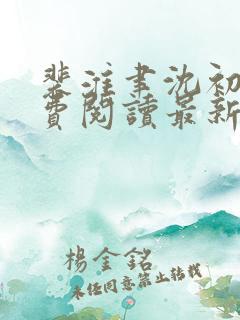 裴淮聿沈初
費閱讀最新
楊金銘
未經同意禁止轉載